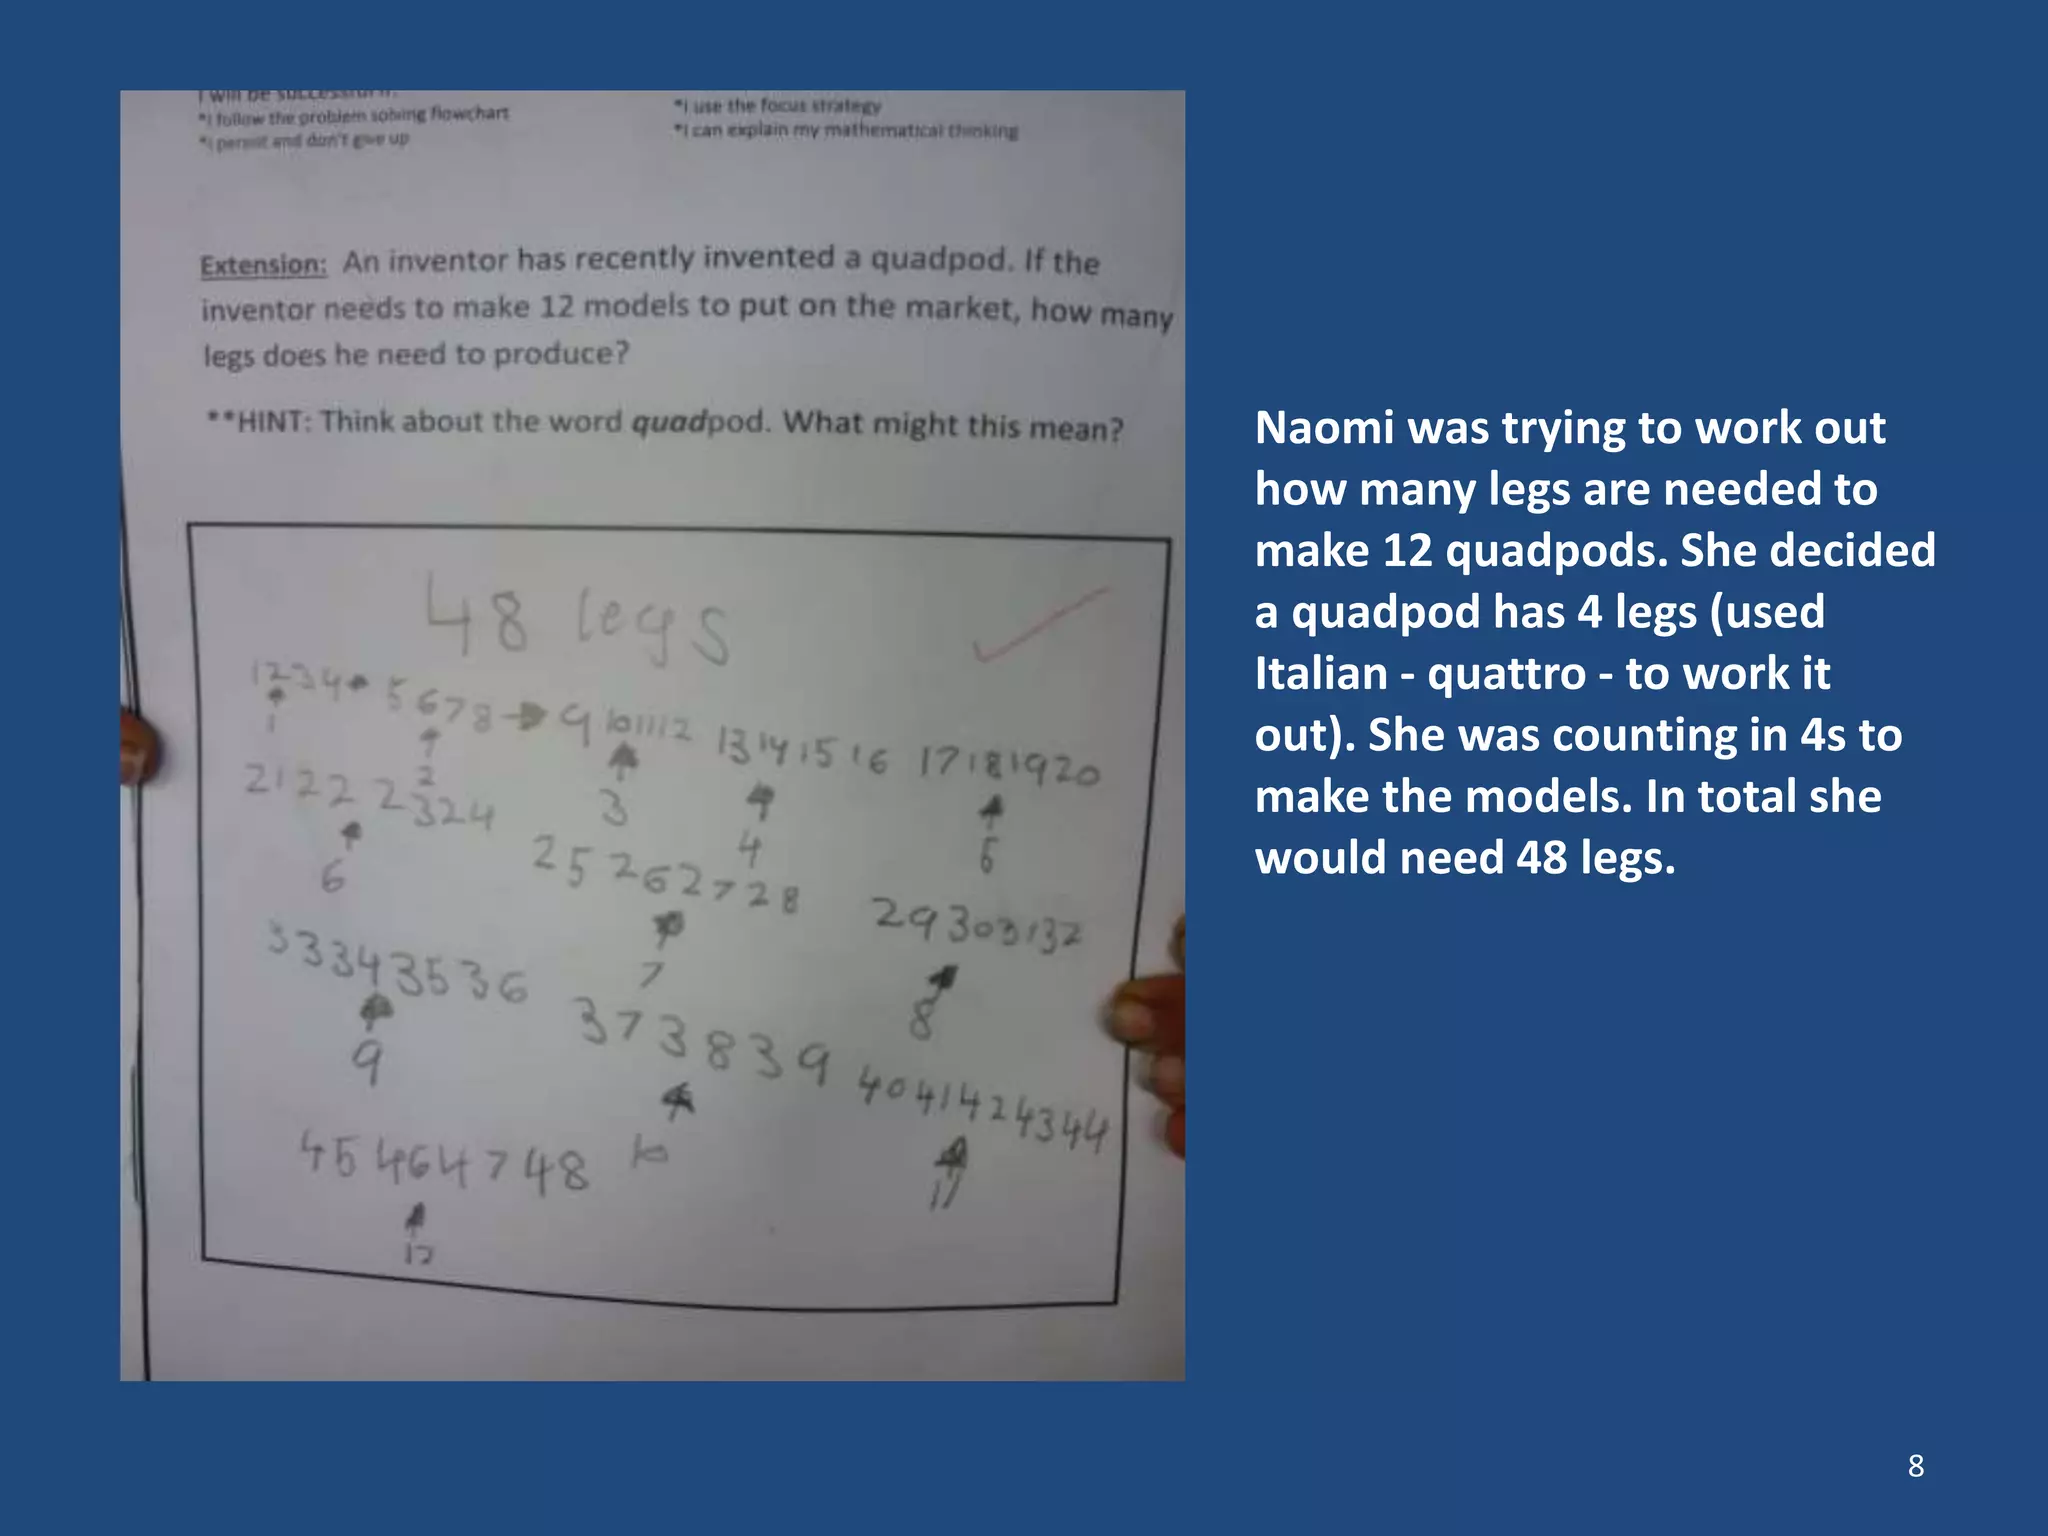 I will be successful if:
*I follow the problem solving flowchart
*I persist and don't give up
*I use the focus strategy
*I can explain my mathematical thinking
Extension: An inventor has recently invented a quadpod. If the
inventor needs to make 12 models to put on the market, how many
legs does he need to produce?
**HINT: Think about the word quadpod. What might this mean?
48 legs
1 2 3 4 5 6 7 8 9 10 11 12 13 14 15 16 17 18 19 20
1 2 3 4 5
21 22 23 24 25 26 27 28 29 30 31 32
6 7 8
33 34 35 36 37 38 39 40 41 42 43 44
9 10 11
45 46 47 48
12
Naomi was trying to work out
how many legs are needed to
make 12 quadpods. She decided
a quadpod has 4 legs (used
Italian - quattro - to work it
out). She was counting in 4s to
make the models. In total she
would need 48 legs.
8